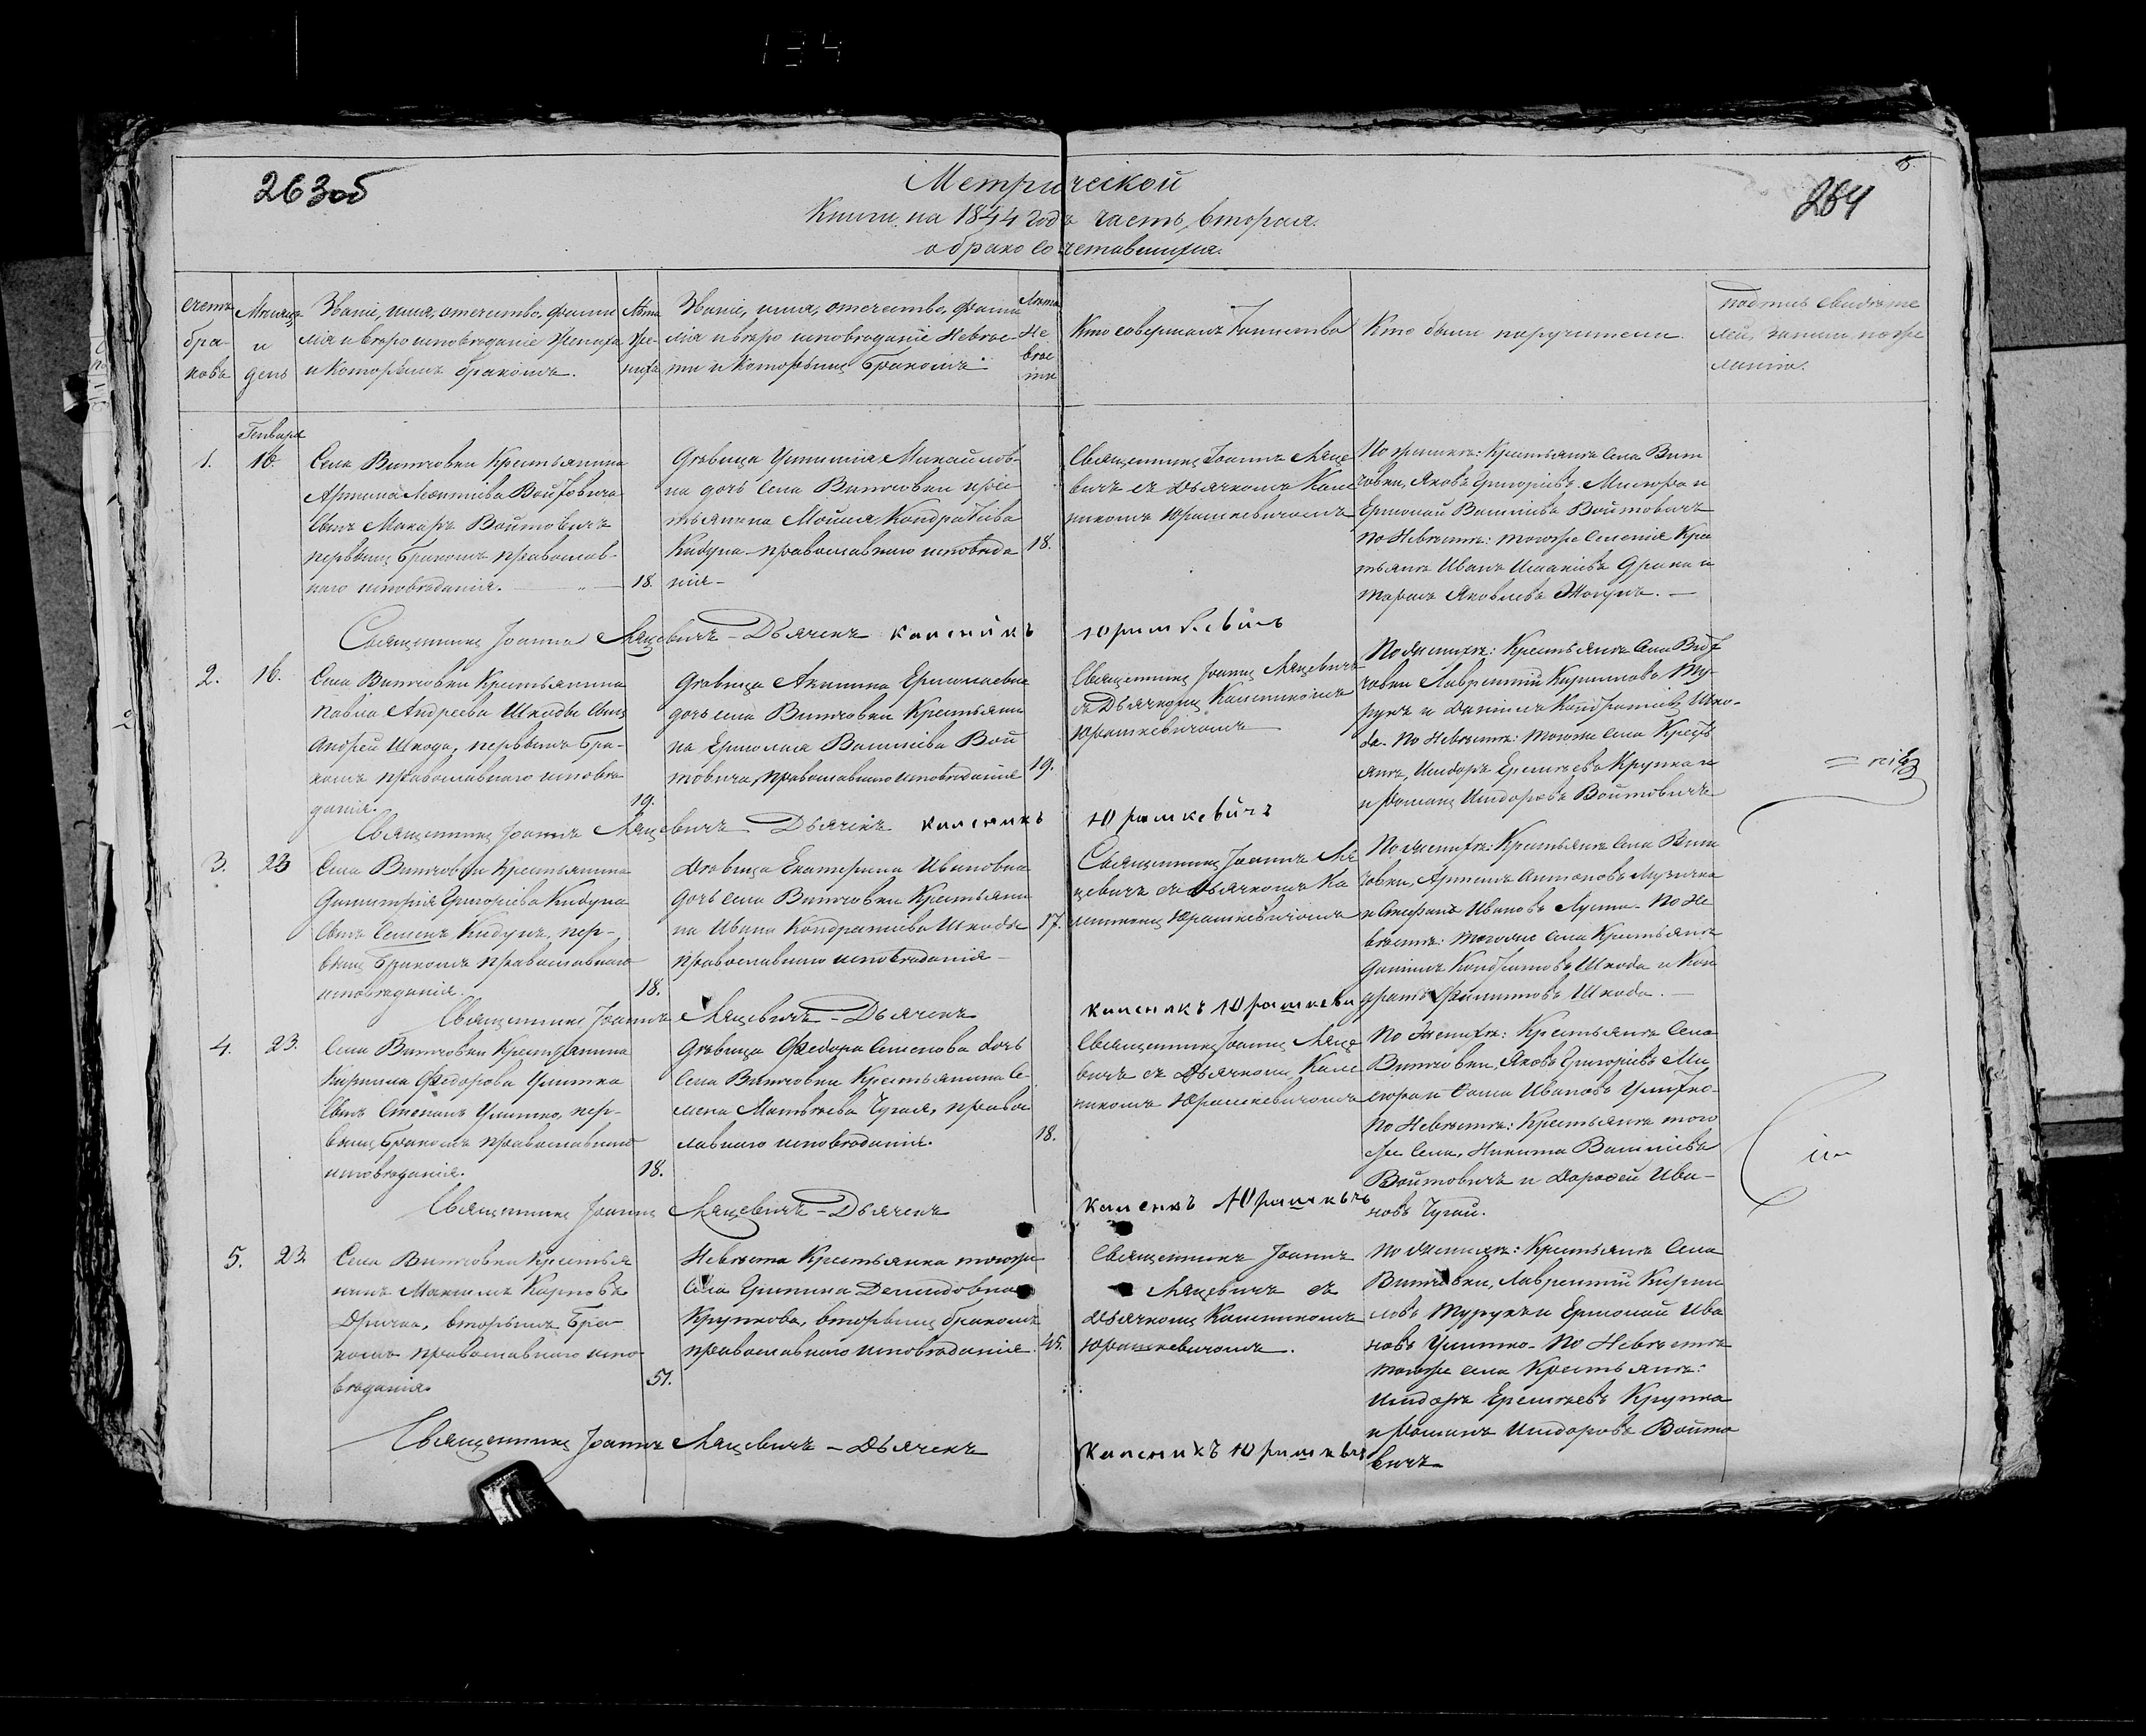 263об
264
Метрической
Книги на 1844 годъ часть вторая.
о бракосочетавшихся.
счетъ
бра-
ковъ
Мѣсяцъ
и
день
Званіе, имя, отечество, фами
лія и вѣроисповѣданіе Жениха
и которымъ бракомъ.
Лѣта
Же-
ниха
Званіе, имя, отечество, фами
лія и вѣроисповѣданіе Невѣс
ты и которымъ бракомъ
Лѣта
Не
вѣс
ты
Кто совершалъ Таинство
Кто были поручители.
Подпись свидѣте
лей записи по же
ланію.
Генваря
1.
16.
Села Витчовки Крестьянина
Войтовича
сынъ Макаръ Войтовичъ
первымъ бракомъ православ-
наго исповѣданія.
18.
Дѣвица Михайлов-
на дочь села Витчовки крес
тьянина Кондратіева
Кибуна православнаго исповѣда
нія-
18.
Священникъ Іоаннъ Мацс
вичъ съ Дьячкомъ Кале
никомъ Юрашкевичомъ
По женихѣ: Крестьяне села Вит
човки, Яковъ Григоріевъ и
Ермолай Василіевъ Войтовичъ
по Невѣстѣ: тогоже селенія Крес
тьяне Иванъ и
Тарасъ Яковлевъ
Священникъ Іоаннъ Мацевичъ - Дьячекъ Каленикъ Юрашкевичъ
2.
16.
Села Витчовки Крестьянина
Павла Андреева Шкоды сынъ
Андрей Шкода, первымъ бра-
комъ православнаго исповѣ
данія.
19.
Дѣвица Акилина Ермолаевна
дочь села Витчовки Крестьяни
на Ермолая Василіева Вой
товича, православнаго исповѣданія
19.
Священникъ Іоаннъ Мацевичъ
съ Дьячкомъ Каленикомъ
Юрашкевичомъ
По женихѣ: Крестьяне села Вит
човки Лаврентій Кириловъ Ту-
рукъ и Даніилъ Кондратіевъ Шко-
да. По Невѣстѣ: тогоже села Кресть
яне, Исидоръ Еремѣевъ Крупка и
и Романъ Исидоровъ Войтовичъ
Священникъ Іоаннъ Мацевичъ Дьячекъ Каленикъ Юрашкевичъ
3.
23
Села Витчовки Крестьянина
Димитрія Григоріева Кибуна
сынъ Семенъ Кибунъ, пер-
вымъ бракомъ православнаго
исповѣданія.
18.
Дѣвица Екатерина Ивановна
дочь села Витчовки Крестьяни
на Ивана Кондратіева Шкоды
православнаго исповѣданія
17.
Священникъ Іоаннъ Ма
цевичъ съ Дьячкомъ Ка
леникомъ Юрашкевичомъ
По женихѣ: Крестьяне села Вит
човки, Антоновъ Музычка
и Стефанъ Ивановъ По Не
вѣстѣ: тогоже села Крестьяне
Даніилъ Кондратовъ Шкода и Кон
дратъ Филиповъ Шкода.
Священникъ Іоаннъ Мацевичъ - Дьячекъ Каленикъ Юрашкеви
4.
23.
Села Витчовки Крестьянина
Кирилла Федорова Улитка
сынъ Степанъ Улитко, пер-
вымъ бракомъ православнаго
исповѣданія.
18.
Дѣвица Федора Семенова дочь
села Витчовки Крестьянина Се
мена Матвѣева Чугая, правос
лавнаго исповѣданія.
18.
Священникъ Іоаннъ Маце
вичъ съ Дьячкомъ Кале
никомъ Юрашкевичомъ
По женихѣ: Крестьяне села
Витчовки, Яковъ Григоріевъ
и Ивановъ
По Невѣстѣ: Крестьяне того
же села, Никита Василіевъ
Войтовичъ и Дорофей Ива-
новъ Чугай.
Священникъ Іоаннъ Мацевичъ - Дьячекъ Каленикъ Юрашкевичъ
5.
23
Села Витчовки Крестья
нинъ Максимъ Карповъ
вторымъ бра-
комъ православнаго испо
вѣданія.
51.
Невѣста Крестьянка тогоже
села Демидовна
Крупкова, вторымъ бракомъ
православнаго исповѣданія.
45.
Священникъ Іоаннъ
Мацевичъ съ
Дьячкомъ Каленикомъ
Юрашкевичомъ.
По женихѣ: Крестьяне села
Витчовки, Лаврентій Кирил
ловъ Турукъ и Ермолай Ива
новъ Улитко. По Невѣстѣ
тогоже села Крестьяне:
Исидоръ Еремѣевъ Крупка
и Романъ Исидоровъ Войто
вичъ
Священникъ Іоаннъ Мацевичъ - Дьячекъ Каленикъ Юрашкевич